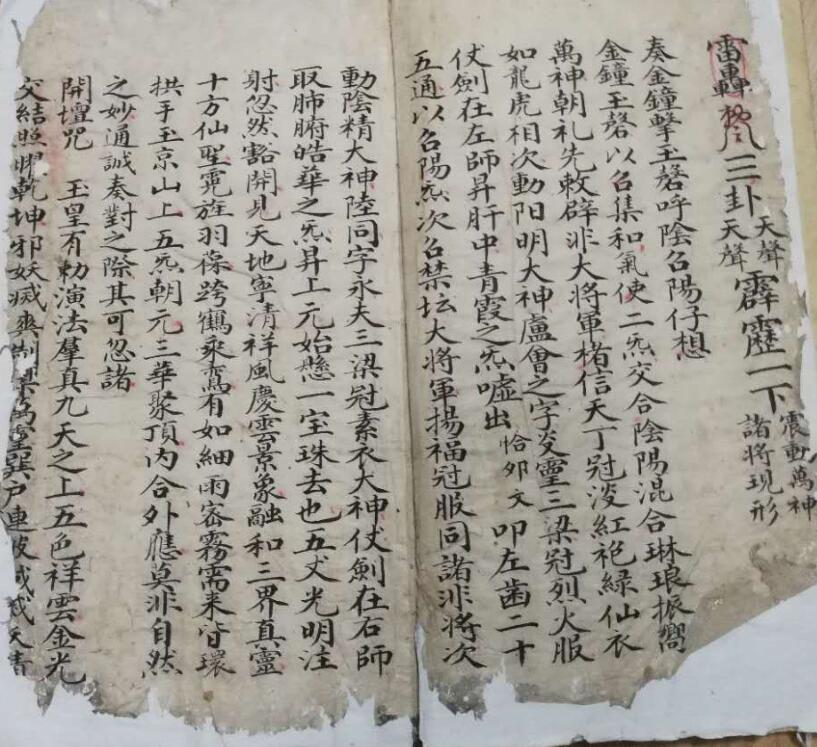 雷轟 風三卦 天聲 天聲 霹靂一下 震動萬神 諸將現形
奏金鐘擊玉磬呼陰召陽仔想
金鐘玉磬以召集和氣使二炁交合陰陽混合琳琅振嚮
萬神朝礼先敕辟非大將軍楮信天丁冠淩紅袍綠仙衣
如龍虎相次動阳明大神盧會之字炎靈三梁冠烈火服
仗劍在左師昇肝中青霞之炁噓出 恰 文 叩左歯二十
五通以召陽炁次召禁坛大將軍揚福冠服同諸非將次
動陰精大神陸同字永夫三梁冠素衣大神仗劍在右師
取肺腑皓華之炁昇上元始懸一宝珠去也五丈光明注
射忽然豁開見天地寧清祥風慶雲景象融和三界真靈
十方仙聖霓旌羽葆跨鶴乘鸞有如細雨密霧需来皆環
拱手玉京山上五炁朝元三華聚頂内合外應莫非自然
之妙通誠奏對之際其可忽諸
開壇咒 玉皇有勅演法羣真九天之上五色祥雲金光
交結照耀乾坤邪妖滅爽 户連